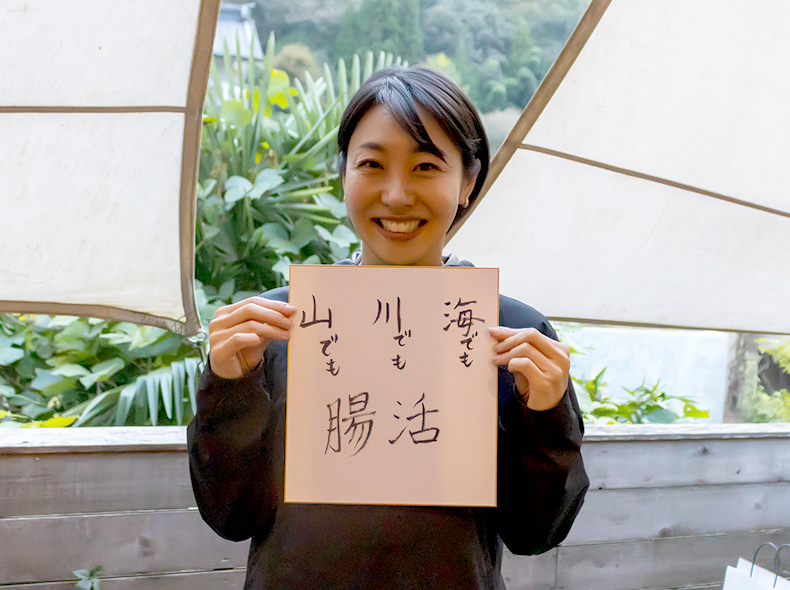 海でも
川でも
山でも
腸活